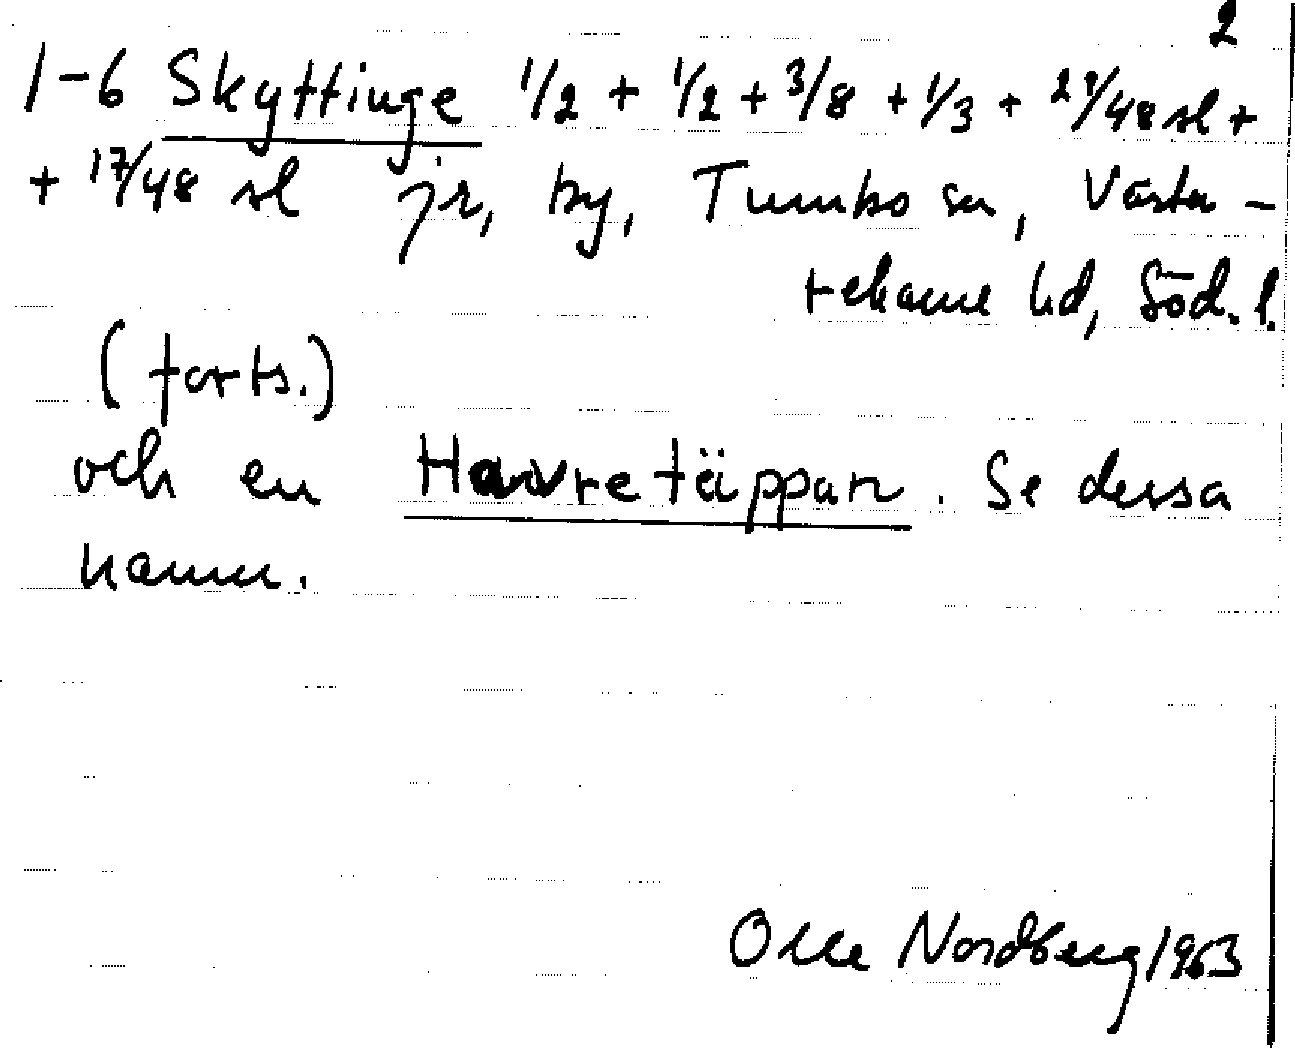 2
1-6 Skyttinge 1/2 + 1/2 + 3/8 + 1/3 + 29/48 sl +
+ 17/48 sl jr, by, Tumbo sn, Väster-
rekarne hd, Söd. l.
(forts.)
och en Havretäppan. Se dessa
namn.
Olle Nordberg 1963